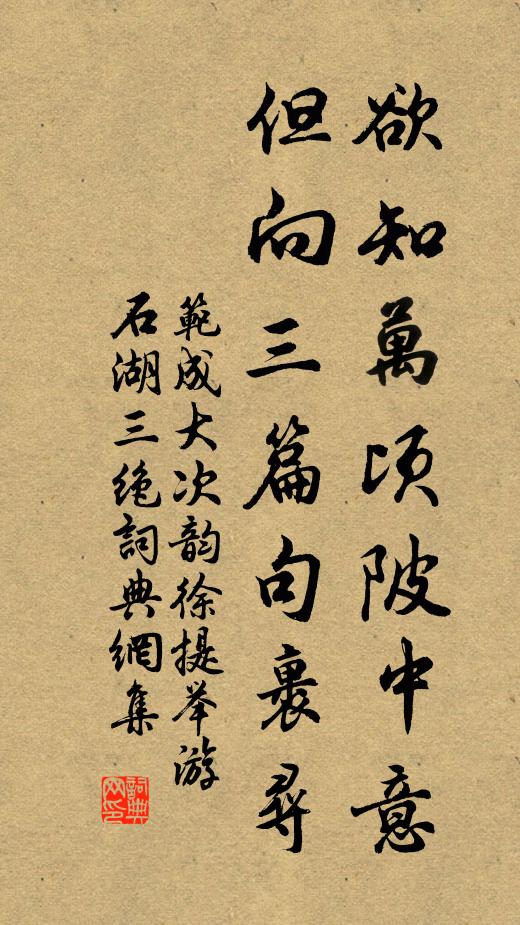 欲知萬頃陂中意
但向三篇句裏尋
範成大次韵徐提举游
石湖三绝詞典網集
詞典網印